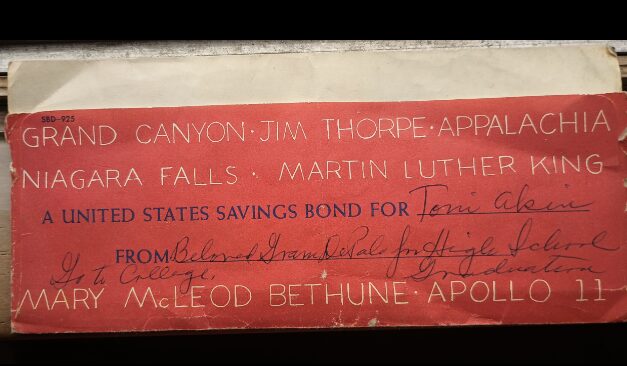 SBD-925
GRAND CANYON · JIM THORPE · APPALACHIA
NIAGARA FALLS · MARTIN LUTHER KING
A UNITED STATES SAVINGS BOND FOR Toni Akin
FROM Beloved Gram for High School
Go to College. Graduation
MARY McLEOD BETHUNE · APOLLO 11